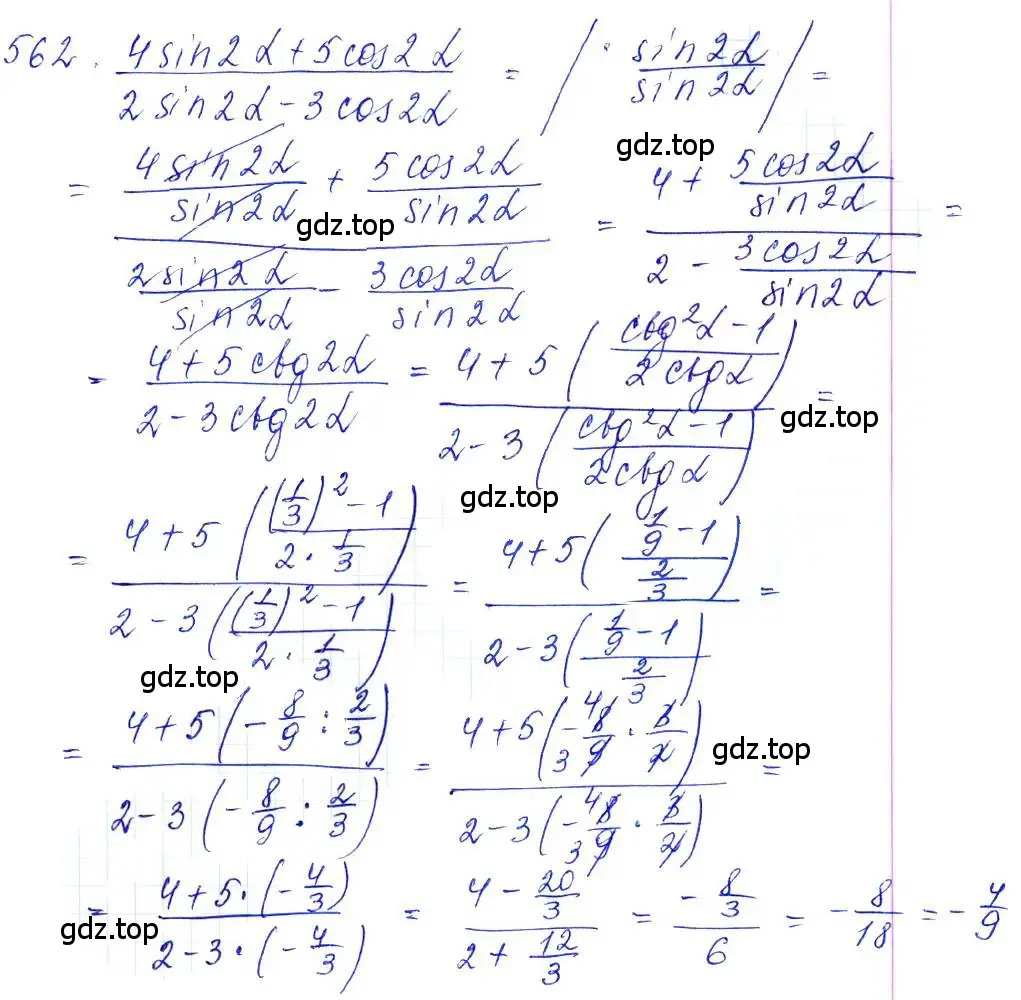 562. (4 sin2α + 5 cos2α)/(2 sin2α - 3 cos2α) = /· (sin2α)/(sin2α)/ =
= ((4 sin2α)/(sin2α) + (5 cos2α)/(sin2α))/((2 sin2α)/(sin2α) - (3 cos2α)/(sin2α)) = (4 + (5 cos2α)/(sin2α))/(2 - (3 cos2α)/(sin2α)) =
gdz.top
gdz.top
= (4 + 5 ctg2α)/(2 - 3 ctg2α) = (4 + 5((ctg²α - 1)/(2 ctgα)))/(2 - 3((ctg²α - 1)/(2 ctgα))) =
gdz.top
gdz.top
= (4 + 5(((1/3)² - 1)/(2 · 1/3)))/(2 - 3(((1/3)² - 1)/(2 · 1/3))) = (4 + 5((1/9 - 1)/(2/3)))/(2 - 3((1/9 - 1)/(2/3))) =
gdz.top
= (4 + 5(-8/9 : 2/3))/(2 - 3(-8/9 : 2/3)) = (4 + 5(-8/9 · 3/2))/(2 - 3(-8/9 · 3/2)) =
gdz.top
= (4 + 5 · (-4/3))/(2 - 3 · (-4/3)) = (4 - 20/3)/(2 + 12/3) = (-8/3)/6 = -8/18 = -4/9
gdz.top